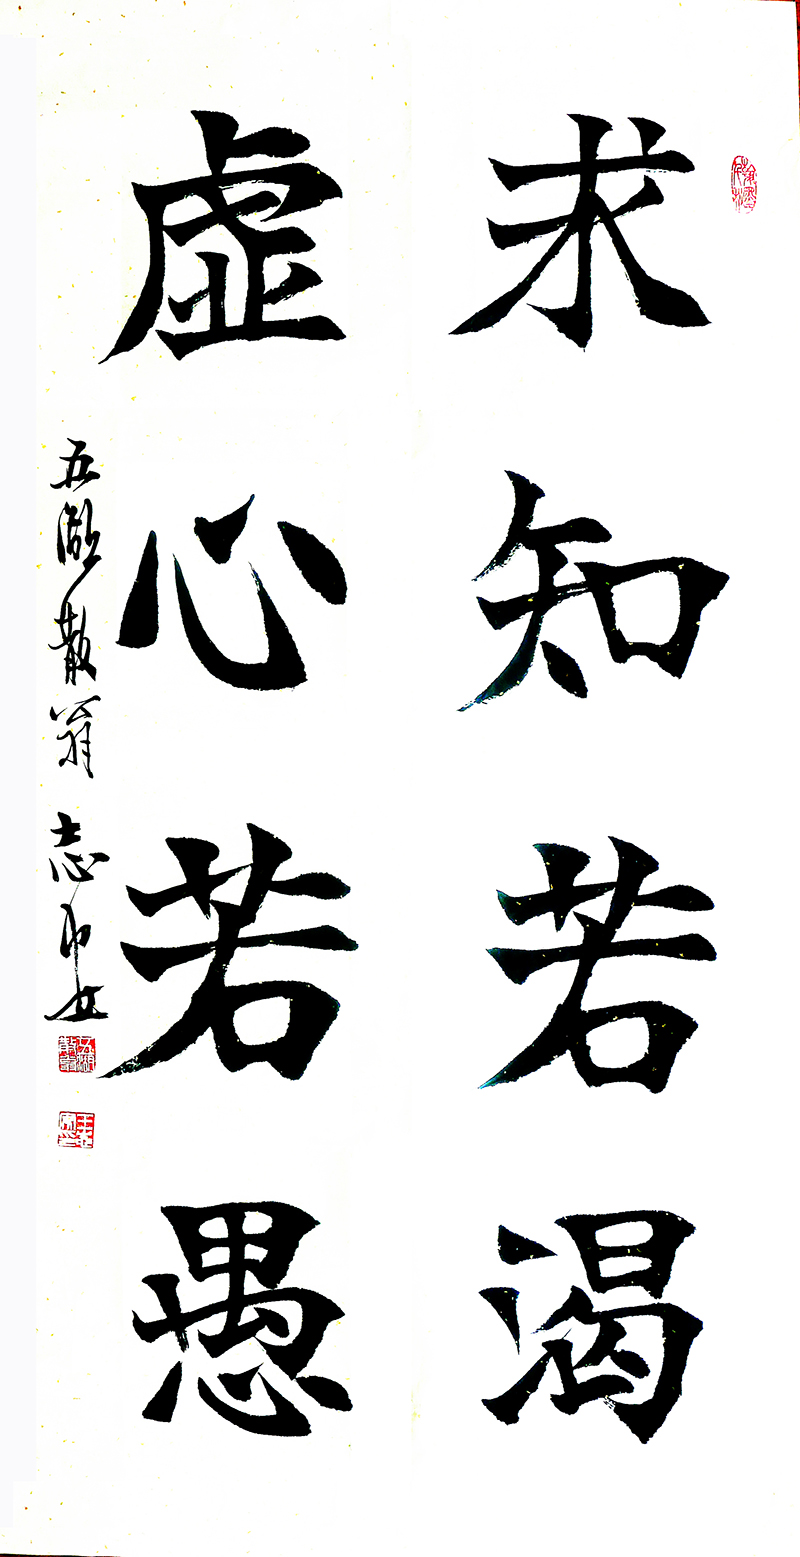 求知若渴
虚心若愚
五湖散翁 志